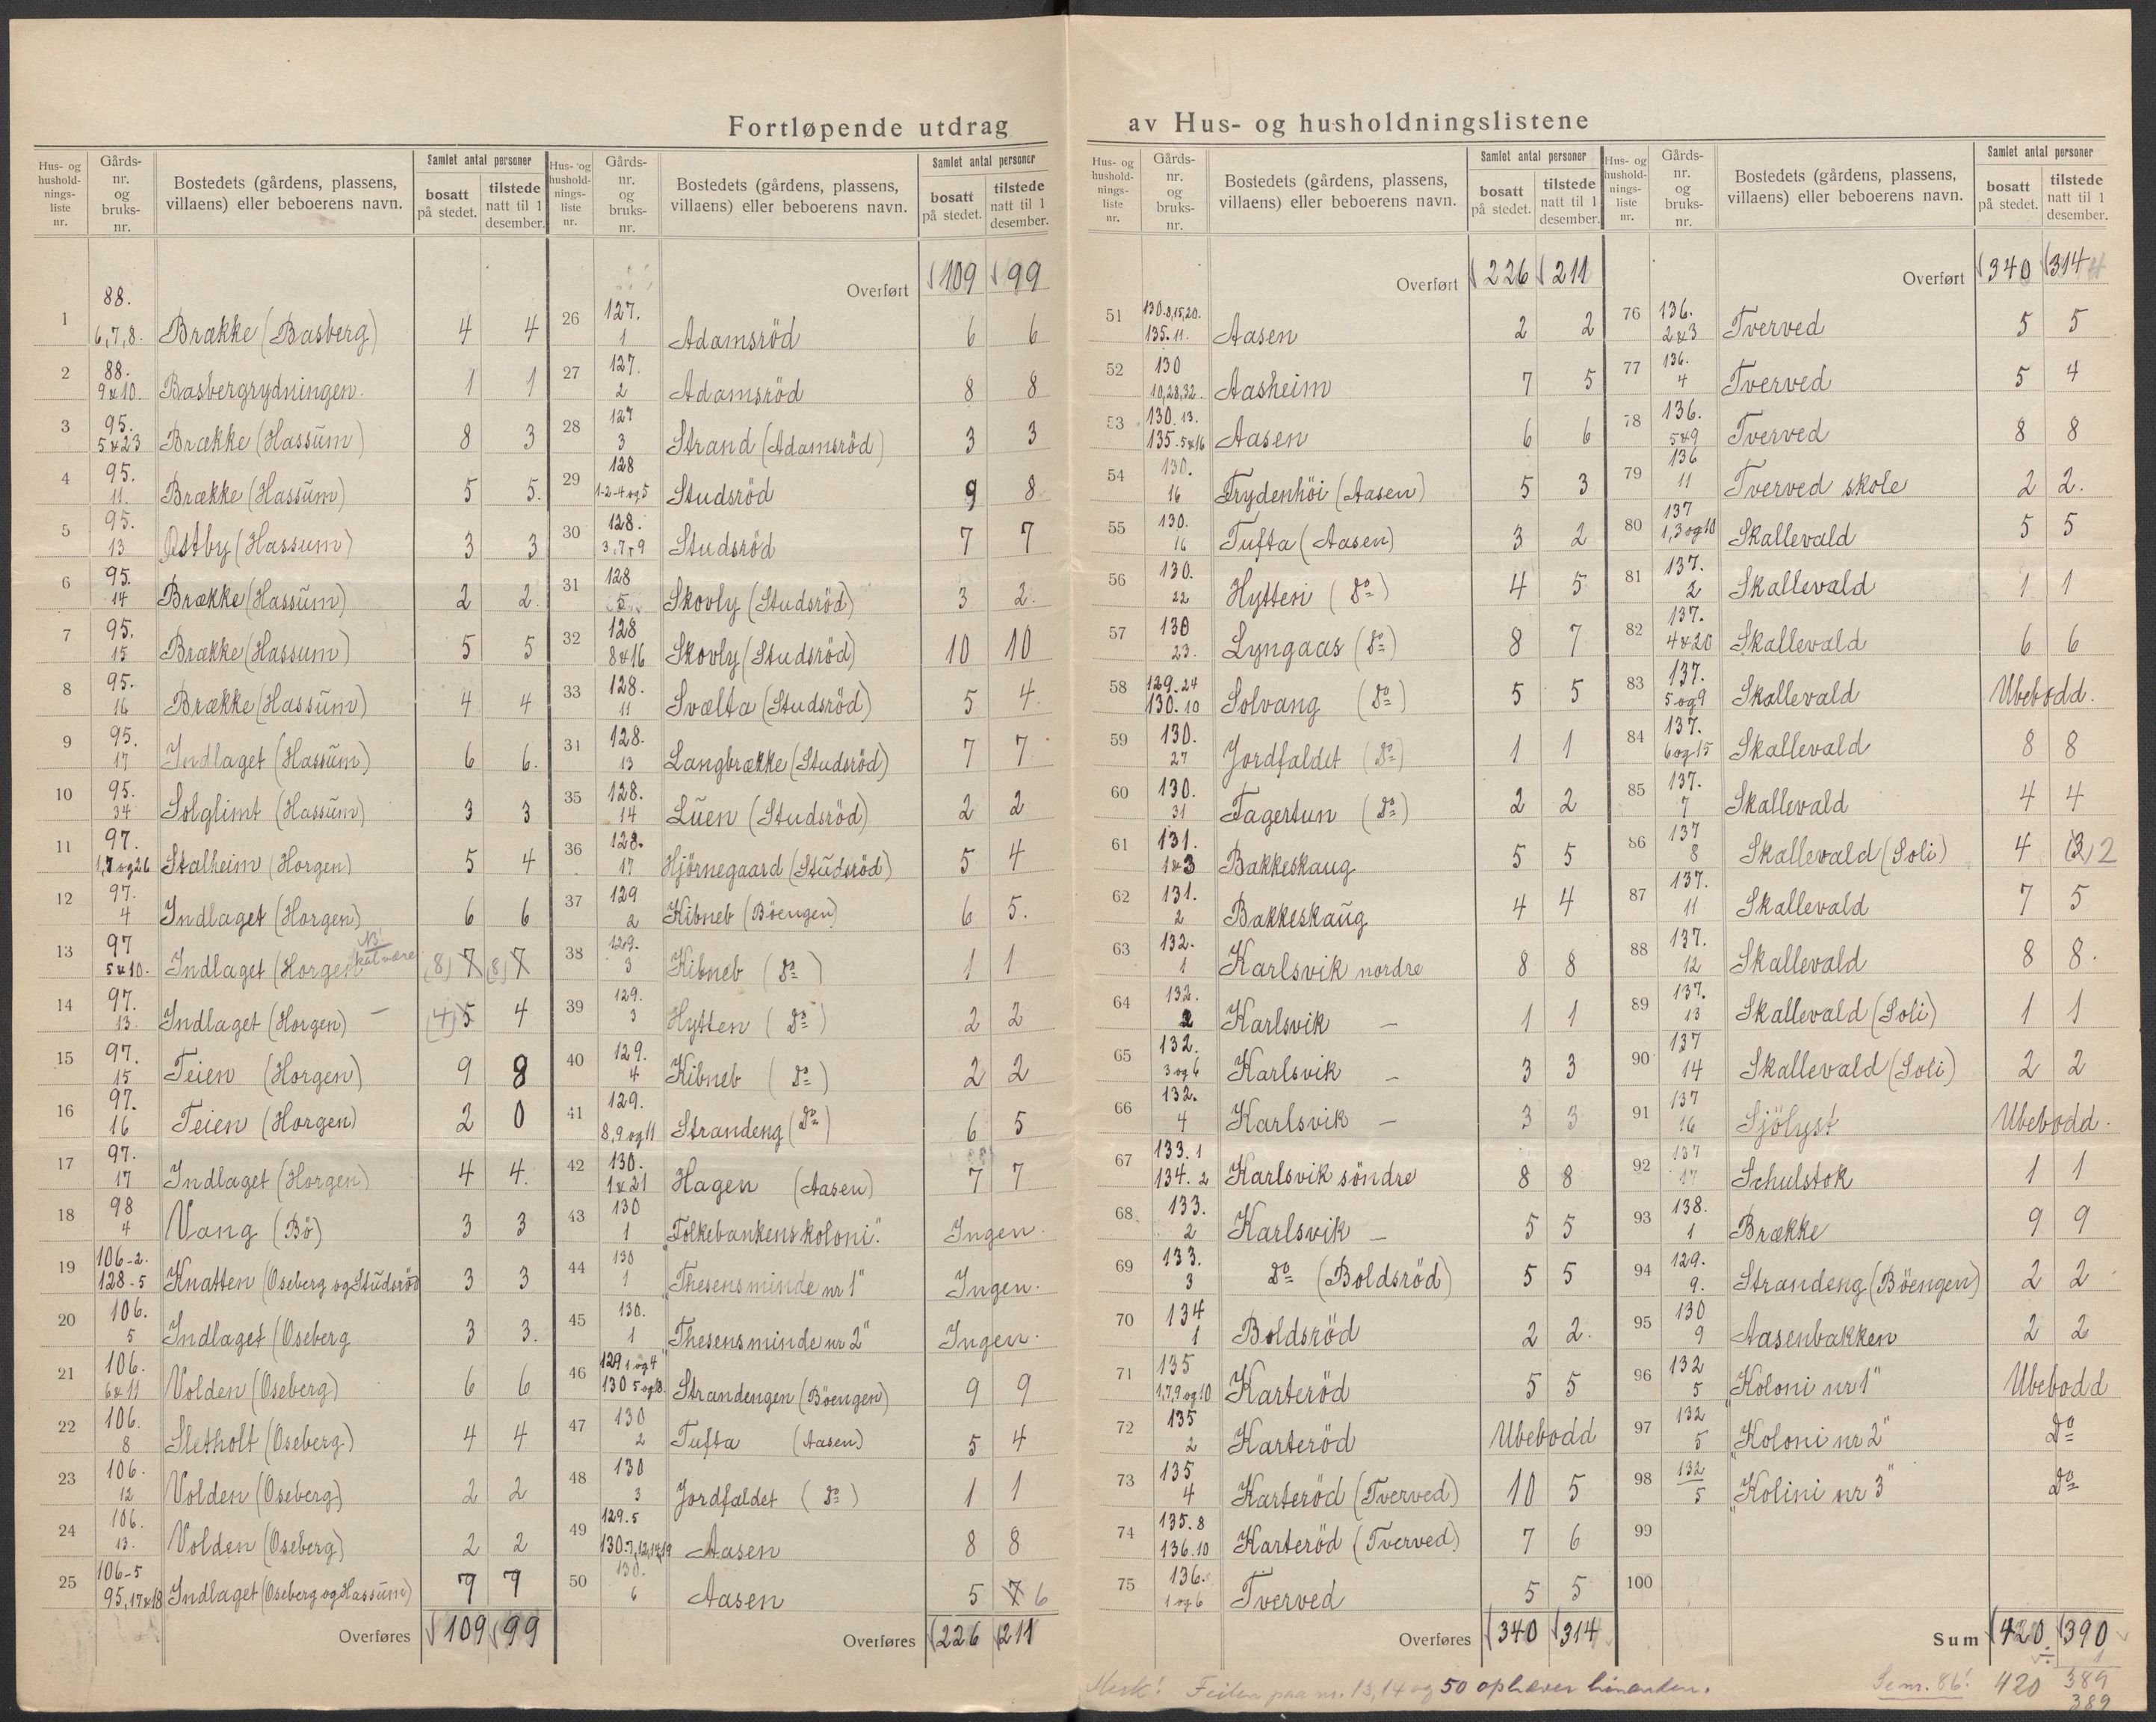 Fortløpende utdrag av Hus- og husholdningslistene
Hus- og husholdnings-liste nr. | Gårds-nr. og bruks-nr. | Bostedets (gårdens, plassens, villaens) eller beboerens navn. | Samlet antal personer bosatt på stedet. | tilstede natt til 1 desember.
1 | 88. 6,7,8. | Brække (Basberg) | 4 | 4
2 | 88. 9&10. | Basbergrydningen. | 1 | 1
3 | 95. 5&23 | Brække (Hassum) | 8 | 3
4 | 95. 11. | Brække (Hassum) | 5 | 5.
5 | 95. 13 | Østby (Hassum) | 3 | 3
6 | 95. 14 | Brække (Hassum) | 2 | 2.
7 | 95. 15 | Brække (Hassum) | 5 | 5
8 | 95. 16 | Brække (Hassum) | 4 | 4
9 | 95. 17 | Indlaget (Hassum) | 6 | 6.
10 | 95. 34 | Solglimt (Hassum) | 3 | 3
11 | 97. 1,7 og 26 | Stalheim (Horgen) | 5 | 4
12 | 97. 4 | Indlaget (Horgen) | 6 | 6
13 | 97 5&10. | Indlaget (Horgen NB! skal være | (8) 7 | (8) 7
14 | 97. 13. | Indlaget (Horgen) — | (4) 5 | 4
15 | 97. 15 | Teien (Horgen) | 9 | 8
16 | 97. 16 | Teien (Horgen) | 2 | 0
17 | 97. 17 | Indlaget (Horgen) | 4 | 4.
18 | 98 4 | Vang (Bö) | 3 | 3
19 | 106-2. 128-5 | Knatten (Oseberg og Studsröd | 3 | 3
20 | 106. 5 | Indlaget (Oseberg | 3 | 3.
21 | 106. 6&11 | Volden (Oseberg) | 6 | 6
22 | 106. 8 | Sletholt (Oseberg) | 4 | 4
23 | 106. 12 | Volden (Oseberg) | 2 | 2
24 | 106. 13. | Volden (Oseberg) | 2 | 2
25 | 106-5 95,17&18 | Indlaget (Oseberg og Hassum) | 7 | 7
Overføres | 109 | 99
Hus- og husholdnings-liste nr. | Gårds-nr. og bruks-nr. | Bostedets (gårdens, plassens, villaens) eller beboerens navn. | Samlet antal personer bosatt på stedet. | tilstede natt til 1 desember.
Overført | 109 | 99
26 | 127. 1 | Adamsröd | 6 | 6
27 | 127. 2 | Adamsröd | 8 | 8
28 | 127 3 | Strand (Adamsröd) | 3 | 3
29 | 128 1-2-4 og 5 | Studsröd | 9 | 8
30 | 128. 3,7,9 | Studsröd | 7 | 7
31 | 128 5 | Skovly (Studsröd) | 3 | 2.
32 | 128 8&16 | Skovly (Studsröd) | 10 | 10
33 | 128. 11 | Svælta (Studsröd) | 5 | 4.
34 | 128. 13 | Langbrække (Studsröd) | 7 | 7
35 | 128. 14 | Luen (Studsröd) | 2 | 2
36 | 128. 17 | Hjörnegaard (Studsröd) | 5 | 4
37 | 129 2 | Kibneb (Böengen) | 6 | 5.
38 | 129. 3 | Kibneb (Do) | 1 | 1
39 | 129. 3 | Hytten (Do) | 2 | 2
40 | 129. 4 | Kibneb (Do) | 2 | 2
41 | 129. 8,9 og 11 | Strandeng (Do) | 6 | 5
42 | 130. 1&21 | Hagen (Aasen) | 7 | 7
43 | 130 1 | "Folkebankens koloni." | Ingen.
44 | 130 1 | "Thesensminde nr 1" | Ingen.
45 | 130. 1 | "Thesensminde nr 2" | Ingen.
46 | 129 1 og 4 130 5 og 18. | Strandengen (Böengen) | 9 | 9
47 | 130 2 | Tufta (Aasen) | 5 | 4
48 | 130 3 | Jordfaldet (Do) | 1 | 1
49 | 129.5 130.7,12,14,19 | Aasen | 8 | 8
50 | 130. 6 | Aasen | 5 | 7 6
Overføres | 226 | 211
Hus- og husholdnings-liste nr. | Gårds-nr. og bruks-nr. | Bostedets (gårdens, plassens, villaens) eller beboerens navn. | Samlet antal personer bosatt på stedet. | tilstede natt til 1 desember.
Overført | 226 | 211
51 | 130.8,15,20. 135.11. | Aasen | 2 | 2
52 | 130 10,28,32. | Aasheim | 7 | 5
53 | 130.13. 135.5&16 | Aasen | 6 | 6
54 | 130. 16 | Frydenhöi (Aasen) | 5 | 3
55 | 130. 16 | Tufta (Aasen) | 3 | 2
56 | 130. 22 | Hytten (Do) | 4 | 5
57 | 130 23. | Lyngaas (Do) | 8 | 7
58 | 129.24 130.10 | Solvang (Do) | 5 | 5
59 | 130. 27 | Jordfaldet (Do) | 1 | 1
60 | 130. 31 | Fagertun (Do) | 2 | 2
61 | 131. 1&3 | Bakkeskaug | 5 | 5
62 | 131. 2 | Bakkeskaug | 4 | 4
63 | 132. 1 | Karlsvik nordre | 8 | 8
64 | 132. 2 | Karlsvik — | 1 | 1
65 | 132. 3 og 6 | Karlsvik — | 3 | 3
66 | 132. 4 | Karlsvik — | 3 | 3
67 | 133.1 134.2 | Karlsvik söndre | 8 | 8
68 | 133. 2 | Karlsvik — | 5 | 5
69 | 133. 3 | Do (Boldsröd) | 5 | 5
70 | 134 1 | Boldsröd | 2 | 2.
71 | 135 1,7,9 og 10 | Karteröd | 5 | 5
72 | 135 2 | Karteröd | Ubebodd
73 | 135 4 | Karteröd (Tverved) | 10 | 5
74 | 135.8 136.10 | Karteröd (Tverved) | 7 | 6
75 | 136. 1 og 6 | Tverved | 5 | 5
Overføres | 340 | 314
Hus- og husholdnings-liste nr. | Gårds-nr. og bruks-nr. | Bostedets (gårdens, plassens, villaens) eller beboerens navn. | Samlet antal personer bosatt på stedet. | tilstede natt til 1 desember.
Overført | 340 | 314
76 | 136. 2&3 | Tverved | 5 | 5
77 | 136. 4 | Tverved | 5 | 4
78 | 136. 5&9 | Tverved | 8 | 8
79 | 136 11 | Tverved skole | 2 | 2.
80 | 137 1,3 og 10 | Skallevald | 5 | 5
81 | 137. 2 | Skallevald | 1 | 1
82 | 137. 4&20 | Skallevald | 6 | 6
83 | 137. 5 og 9 | Skallevald | Ubebodd.
84 | 137. 6 og 15 | Skallevald | 8 | 8
85 | 137. 7 | Skallevald | 4 | 4
86 | 137 8 | Skallevald (Soli) | 4 | (3) 2
87 | 137. 11 | Skallevald | 7 | 5
88 | 137. 12 | Skallevald | 8 | 8.
89 | 137. 13 | Skallevald (Soli) | 1 | 1
90 | 137 14 | Skallevald (Soli) | 2 | 2
91 | 137 16 | Sjölyst | Ubebodd.
92 | 137 17 | Schulstok | 1 | 1
93 | 138. 1 | Brække | 9 | 9
94 | 129. 9. | Strandeng (Böengen) | 2 | 2
95 | 130 9 | Aasenbakken | 2 | 2
96 | 132 5 | "Koloni nr 1" | Ubebodd
97 | 132 5 | "Koloni nr 2" | Do
98 | 132 5 | "Kolini nr 3" | Do
99
100
Sum | 420 | 390
÷ 1
Merk! Feilen paa nr. 13, 14 og 50 ophæver hinanden.
Se nr. 86! 420 389
389